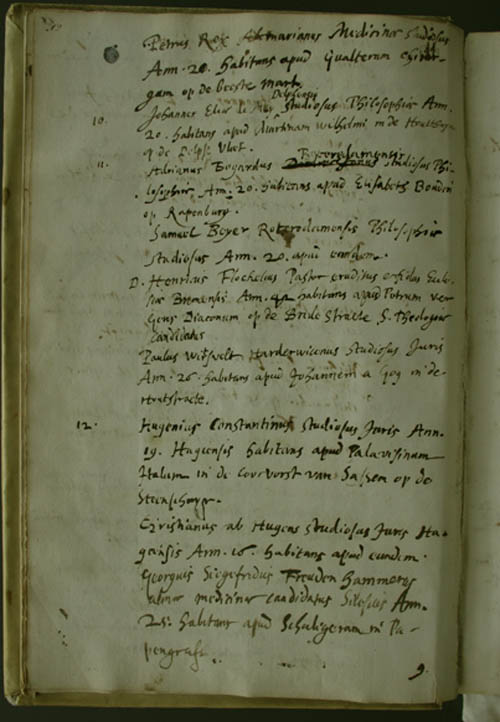 Petrus Roy Alcmarianus Medicinae studiosus
Ann. 20. habitans apud Gualterum chirur
gam op de beeste marct
Johannes Elie Delphensis studiosus Philosophiae Ann.
10.
20. habitans apud Martinum Wilhelmi in de
op de Delfse Vliet.
11.
Adrianus Bogardus Roterodamensis studiosus Phi-
losophiae Ann. 20. habitans apud Elisabeth
op Rapenburg.
Samuel Beyer Roterodamensis Philosophiae
studiosus Ann. 20. apud eundem.
D. Henricus Pastor eruditus Eccle-
siae Bremensis Ann. 42 habitans apud Petrum ver
Gens Diaconum op de Brede Straete S. Theologiae
Candidatus
Paulus Witsvelt Harderwicenus Studiosus Juris
Ann. 26. habitans apud Johannem a Gog in de
straete.
12.
Hugenius Constantinus studiosus Juris Ann.
19. Hagiensis habitans apud
Italum in de van Saxen op de
Steenschuyr.
Christianus ab Hugens studiosus Juris Ha-
giensis Ann. 16. habitans apud eundem.
Georgius Siegefridus Freuden Hammerus
almae medicinae candidatus Silesius Ann.
25. habitans apud Scaligeram in Pa-
pengraft
9.